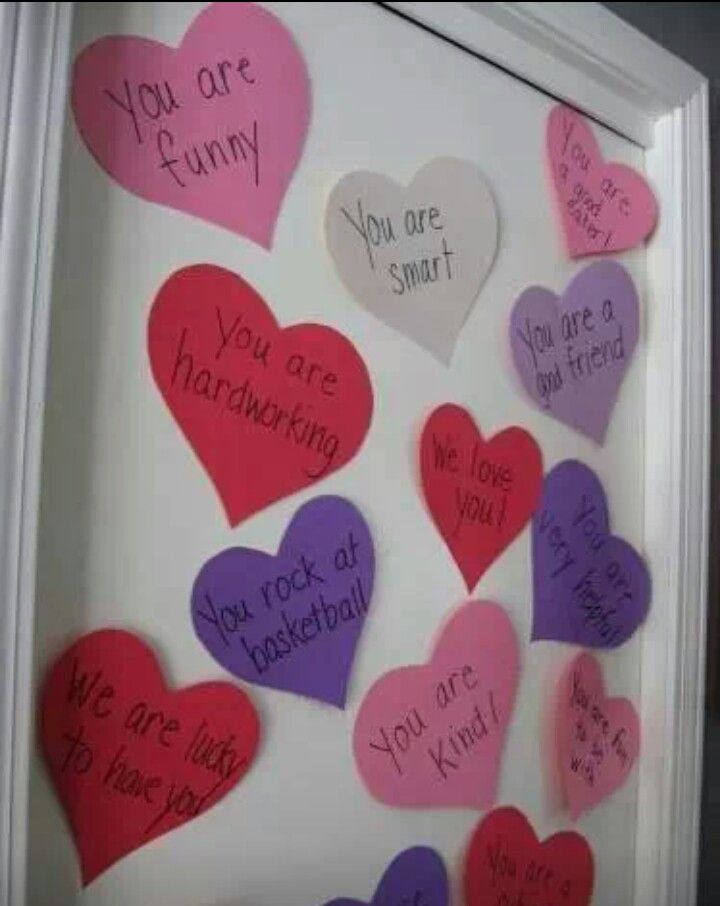 You are
funny
You are
smart
You are
a good
eater!
You are
hardworking
You are a
good friend
We love
you!
You rock at
basketball
You are
very helpful
We are lucky
to have you
You are
kind!
You are fun
to be
with
You are a